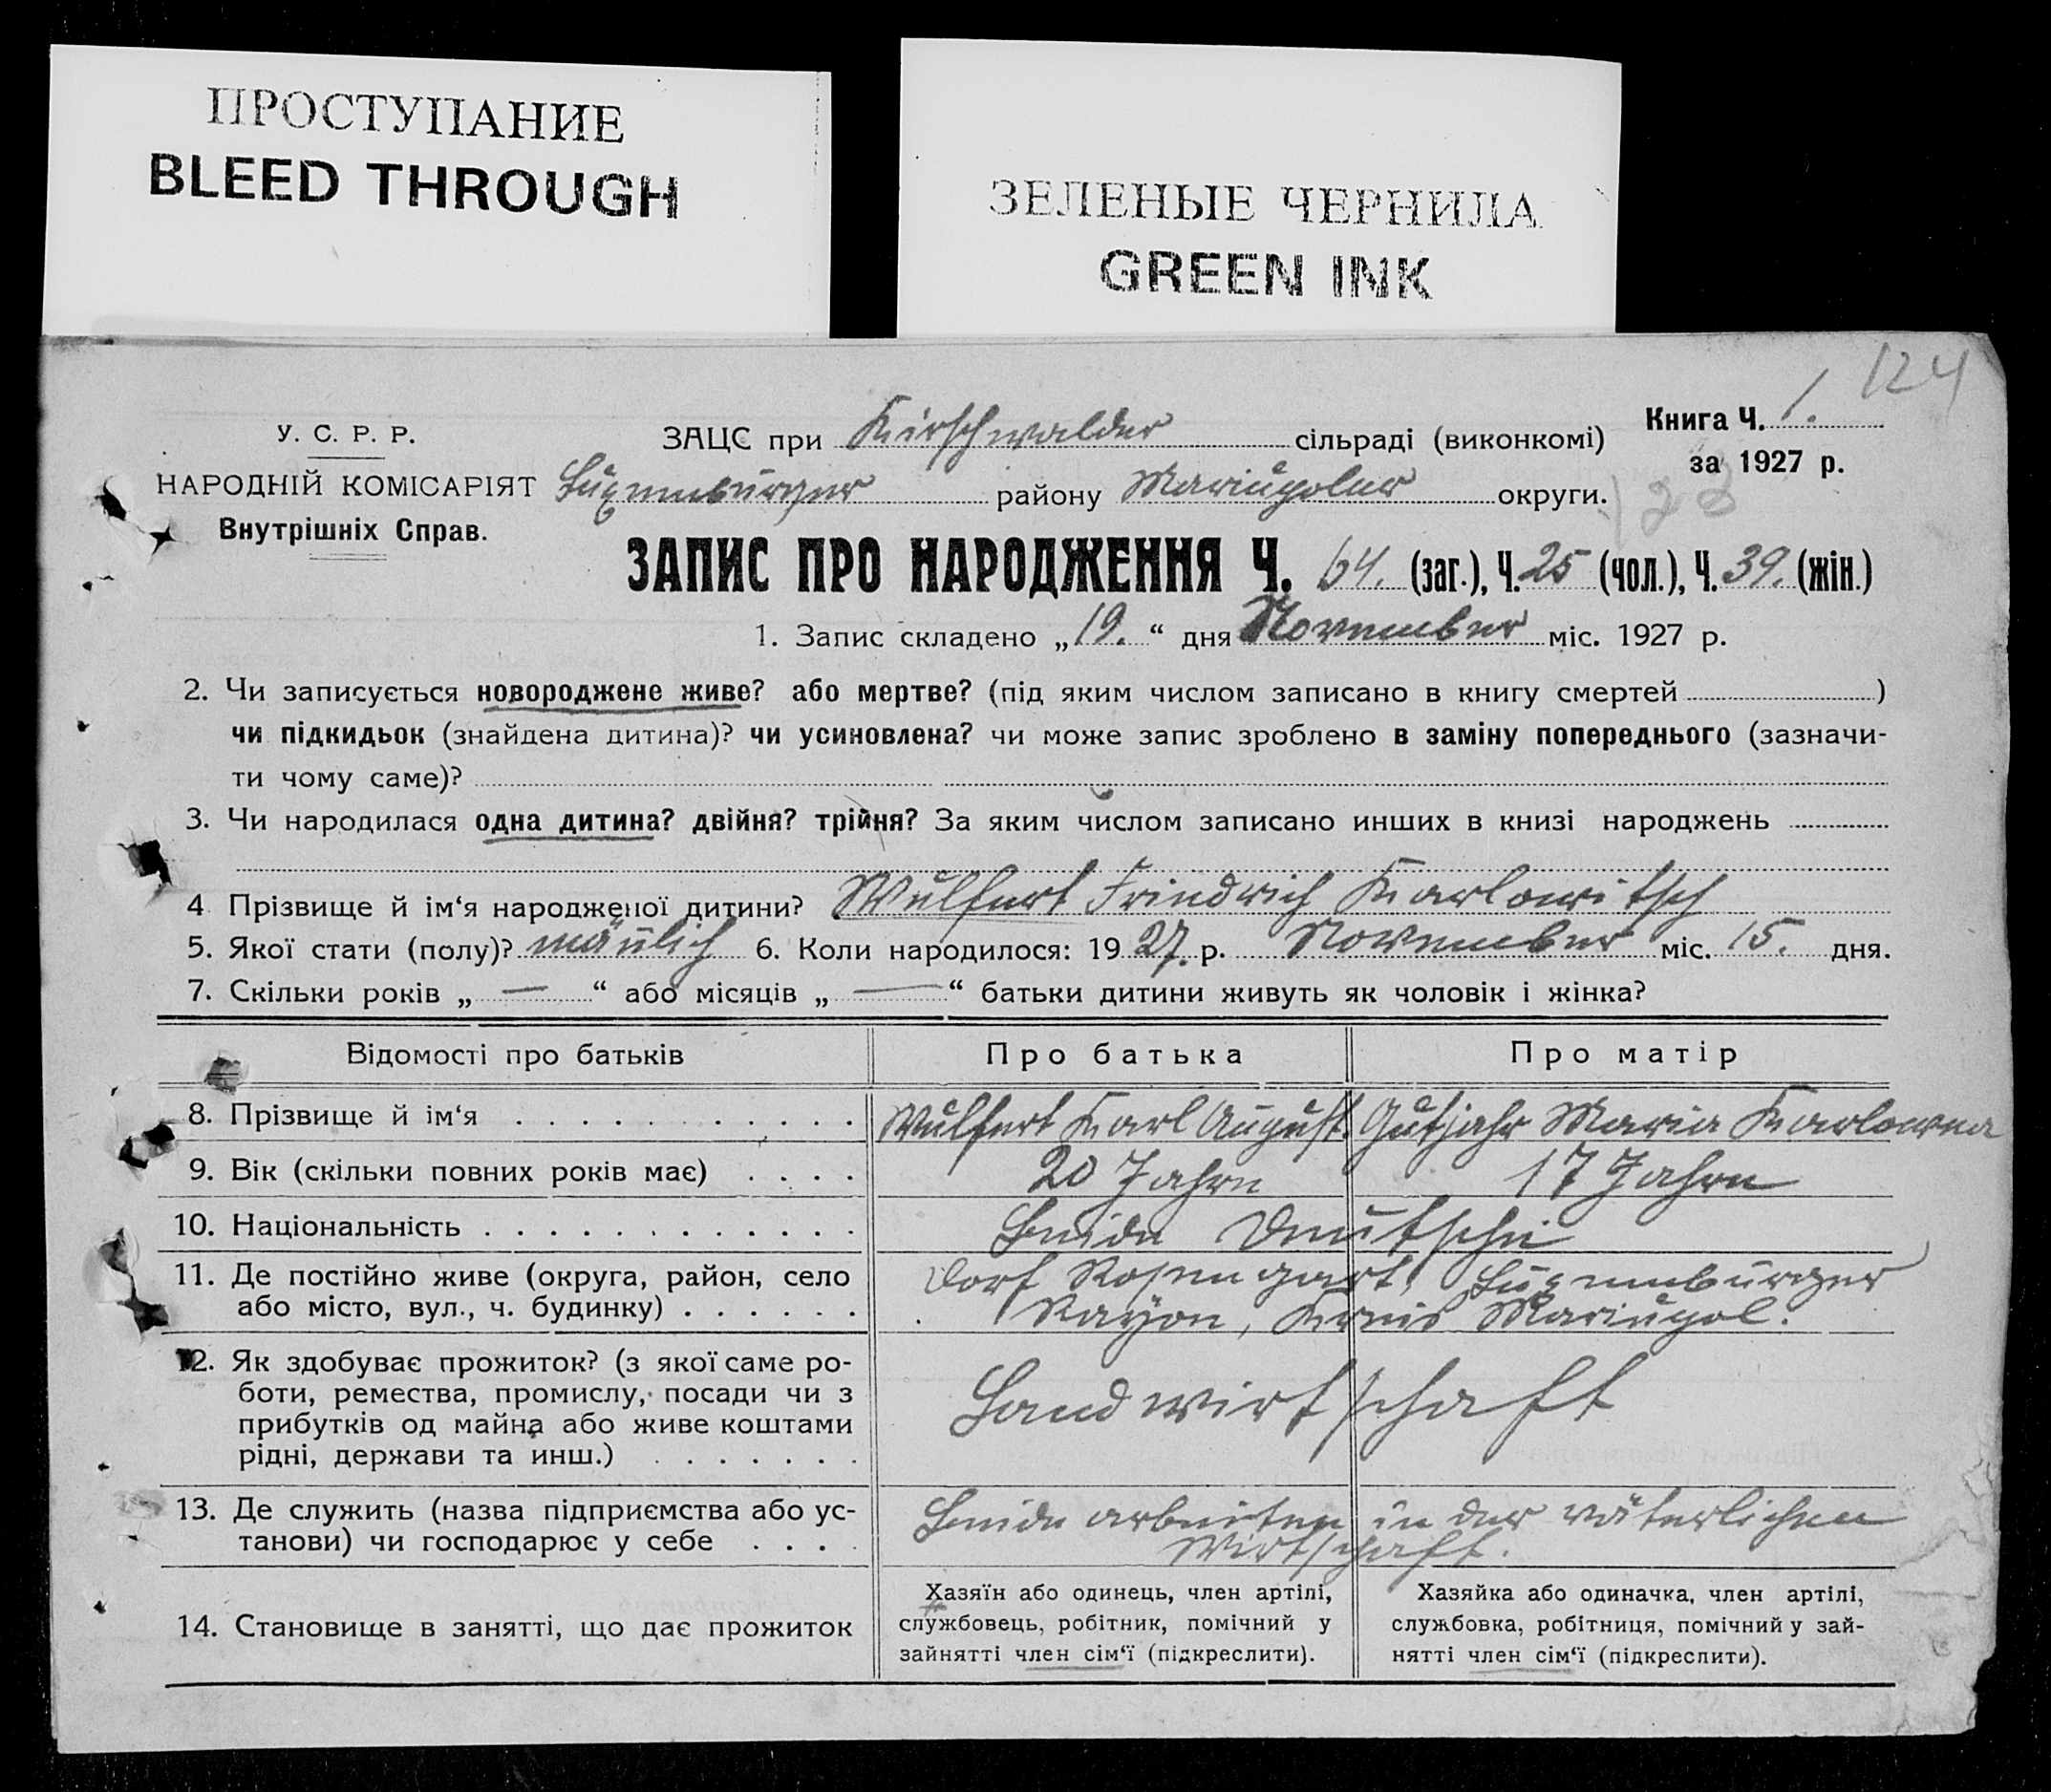 ПРОСТУПАНИЕ
BLEED THROUGH
ЗЕЛЕНЫЕ ЧЕРНИЛА
GREEN INK
124
У. С. Р. Р.
НАРОДНІЙ КОМІСАРІЯТ
Внутрішніх Справ.
ЗАЦС при Kirschwalder сільраді (виконкомі)
Книга Ч. 1.
за 1927 р.
Luxemburger району Mariupoler округи.
123
ЗАПИС ПРО НАРОДЖЕННЯ Ч. 64. (заг.), Ч. 25 (чол.), Ч. 39. (жін.)
1. Запис складено „19.“ дня November міс. 1927 р.
2. Чи записується новороджене живе? або мертве? (під яким числом записано в книгу смертей )
чи підкидьок (знайдена дитина)? чи усиновлена? чи може запис зроблено в заміну попереднього (зазначи-
ти чому саме)?
3. Чи народилася одна дитина? двійня? трійня? За яким числом записано инших в книзі народжень
4 Прізвище й ім‘я народженої дитини? Wulfert Friedrich Karlowitsch
5. Якої стати (полу)? mänlich 6. Коли народилося: 1927. р. November міс. 15. дня.
7. Скільки років „ — “ або місяців „ — “ батьки дитини живуть як чоловік і жінка?
Відомості про батьків Про батька Про матір
8. Прізвище й ім‘я Wulfert Karl August. Gutjahr Maria Karlowna
9. Вік (скільки повних років має) 20 Jahre 17 Jahre
10. Національність Beide Deutsche
11. Де постійно живе (округа, район, село Dorf Rosengart, Luxemburger
або місто, вул., ч. будинку) Rayon, Kreis Mariupol.
12. Як здобуває прожиток? (з якої саме ро-
боти, ремества, промислу, посади чи з Landwirtschaft
прибутків од майна або живе коштами
рідні, держави та инш.)
13. Де служить (назва підприємства або ус- Beide arbeiten in der väterlichen
танови) чи господарює у себе Wirtschaft.
14. Становище в занятті, що дає прожиток
Хазяїн або одинець, член артілі,
службовець, робітник, помічний у
зайнятті член сім‘ї (підкреслити).
Хазяйка або одиначка, член артілі,
службовка, робітниця, помічний у зай-
нятті член сім‘ї (підкреслити).